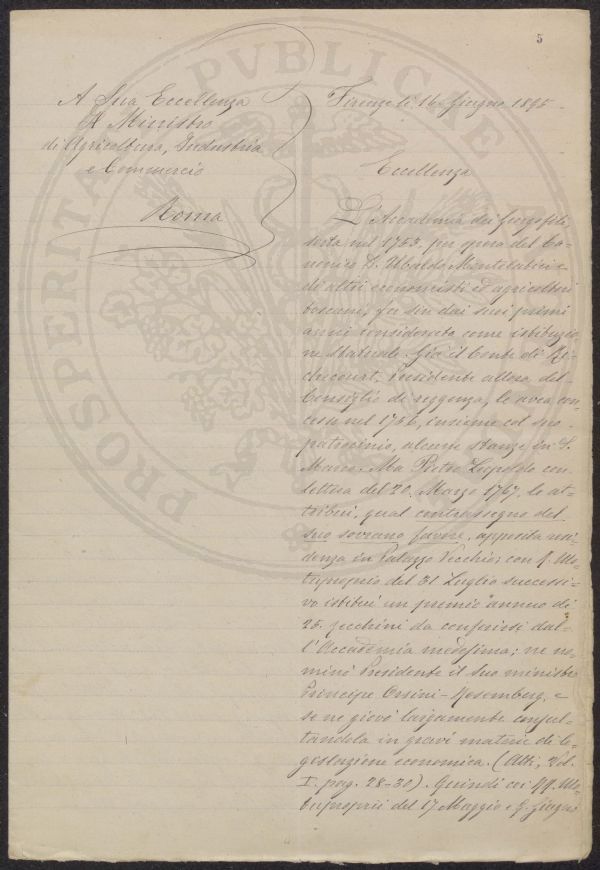 5
A Sua Eccellenza
Il Ministro
di Agricoltura, Industria
e Commercio
Roma
Firenze lì 16 Giugno 1895
Eccellenza
L'Accademia dei Georgofili,
sorta nel 1753. per opera del Ca-
nonico D. Ubaldo Montelatici e
di altri economisti ed agricoltori
toscani, fu sin dai suoi primi
anni considerata come istituzio-
ne Statuale. Già il Conte di Ri-
checourt, Presidente allora del
Consiglio di reggenza, le avea con-
cesse nel 1756, insieme col suo
patrocinio, alcune stanze in S.
Marco. Ma Pietro Leopoldo con
lettera del 20. Marzo 1767, le at-
tribuì, qual contrassegno del
suo sovrano favore, apposita resi-
denza in Palazzo Vecchio; con R. Mo-
tuproprio del 31 Luglio successi-
vo istituì un premio annuo di
25. zecchini da conferirsi dal-
l'Accademia medesima; ne no-
minò Presidente il suo ministro
Principe Orsini-Rosemberg, e
se ne giovò largamente consul-
tandola in gravi materie di le-
gislazione economica. (Atti, Vol.
I. pag. 28-30). Quindi coi RR. Mo-
tuproprii del 17 Maggio e 9. Giugno
PROSPERITATI PVBLICAE